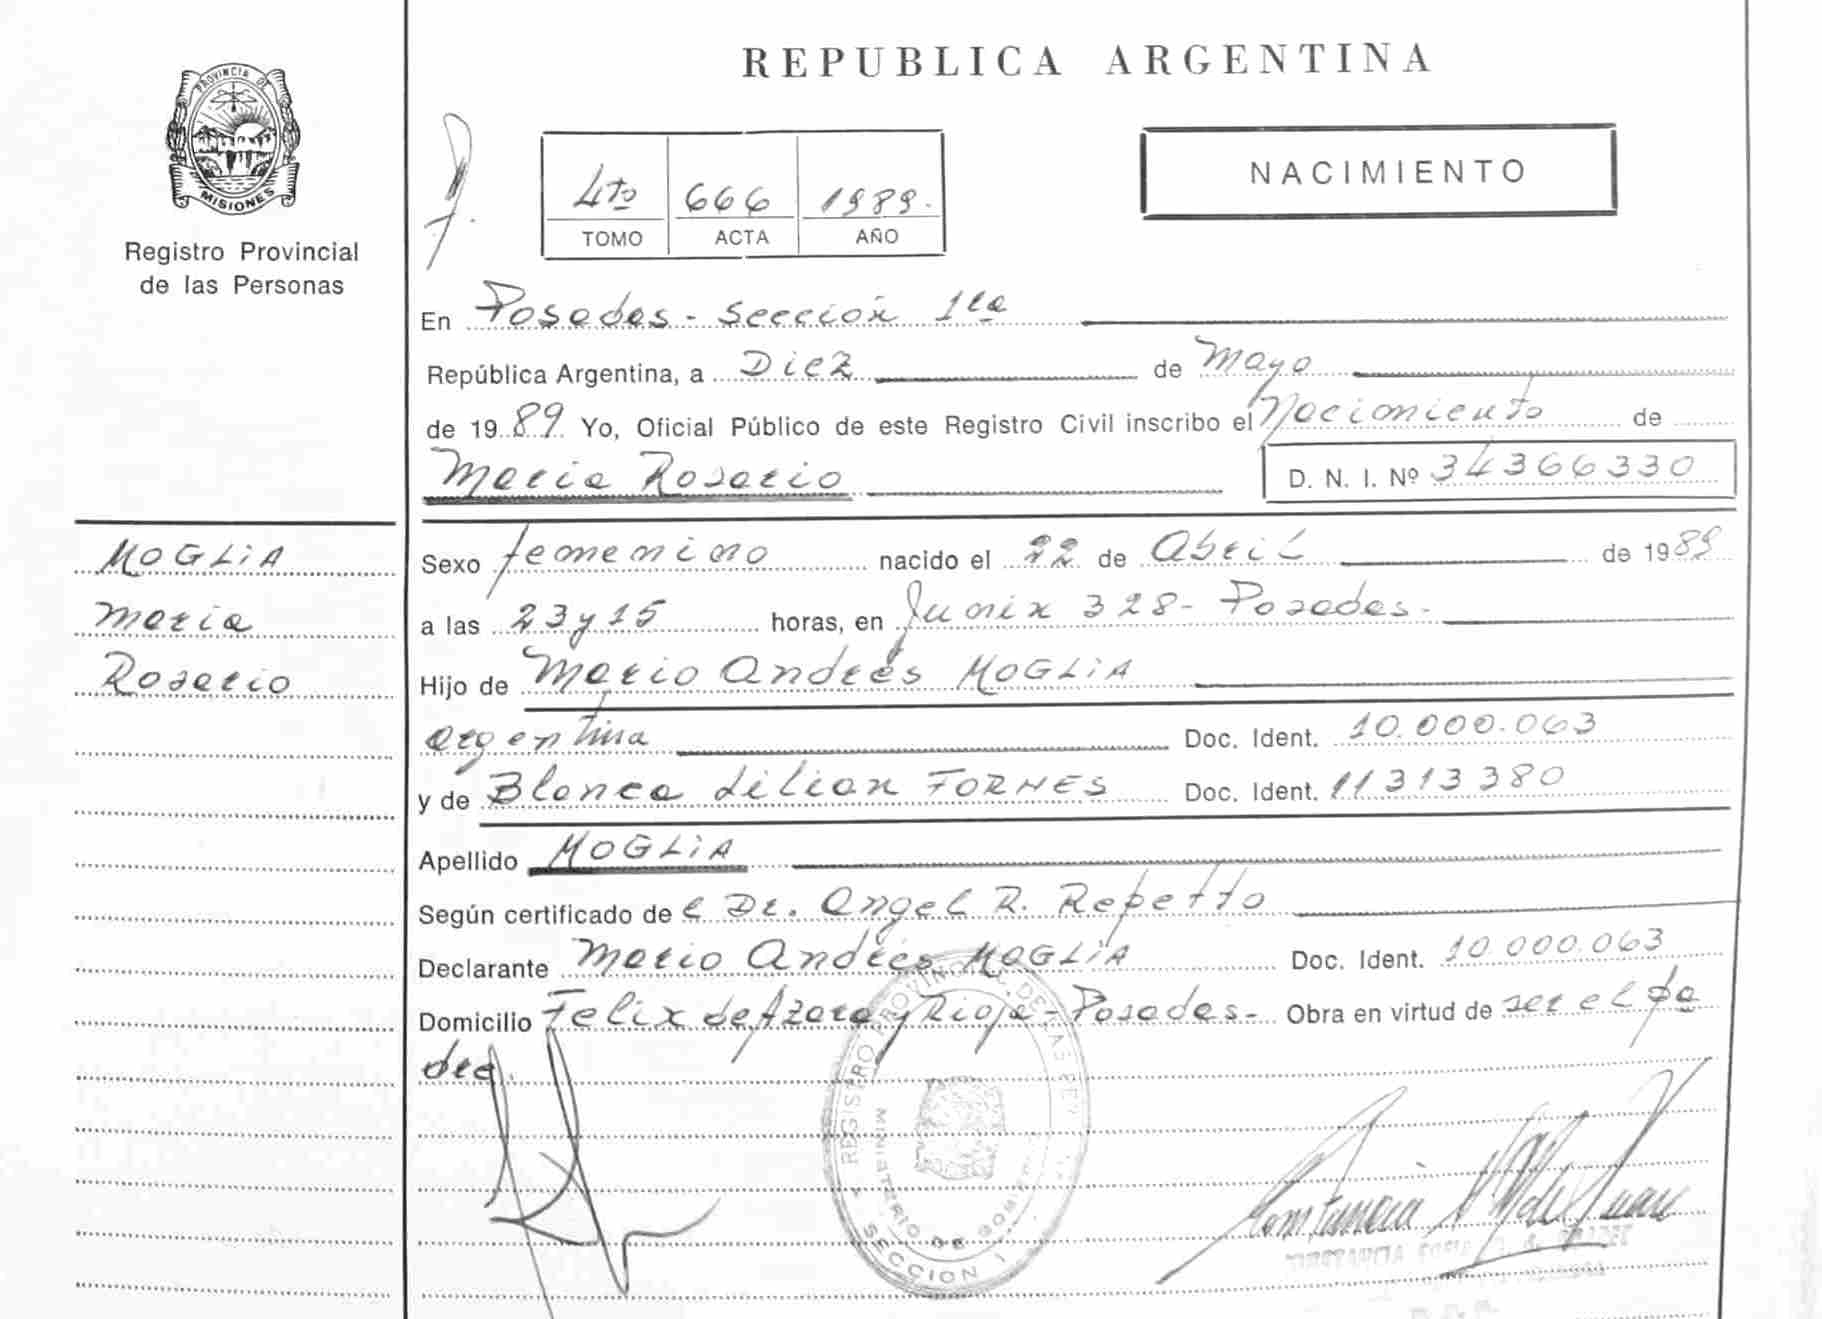 REPUBLICA ARGENTINA
PROVINCIA DE
MISIONES
Registro Provincial
de las Personas
4to 666 1989.
TOMO ACTA AÑO
NACIMIENTO
En Posadas - Sección 1ra
República Argentina, a Diez de Mayo
de 1989 Yo, Oficial Público de este Registro Civil inscribo el Nacimiento de
María Rosario D. N. I. Nº 34366330
MOGLIA
María
Rosario
Sexo femenino nacido el 22 de Abril de 1989
a las 23 y 15 horas, en Junín 328 - Posadas.
Hijo de Mario Andrés MOGLIA
argentina Doc. Ident. 10.000.063
y de Blanca Lilian FORNES Doc. Ident. 11313380
Apellido MOGLIA
Según certificado de el Dr. Angel R. Repetto
Declarante Mario Andrés MOGLIA Doc. Ident. 10.000.063
Domicilio Felix de Azara y Rioja - Posadas - Obra en virtud de ser el pa
dre.
REGISTRO PROVINCIAL DE LAS PER
MINISTERIO DE GOBIE
SECCION 1